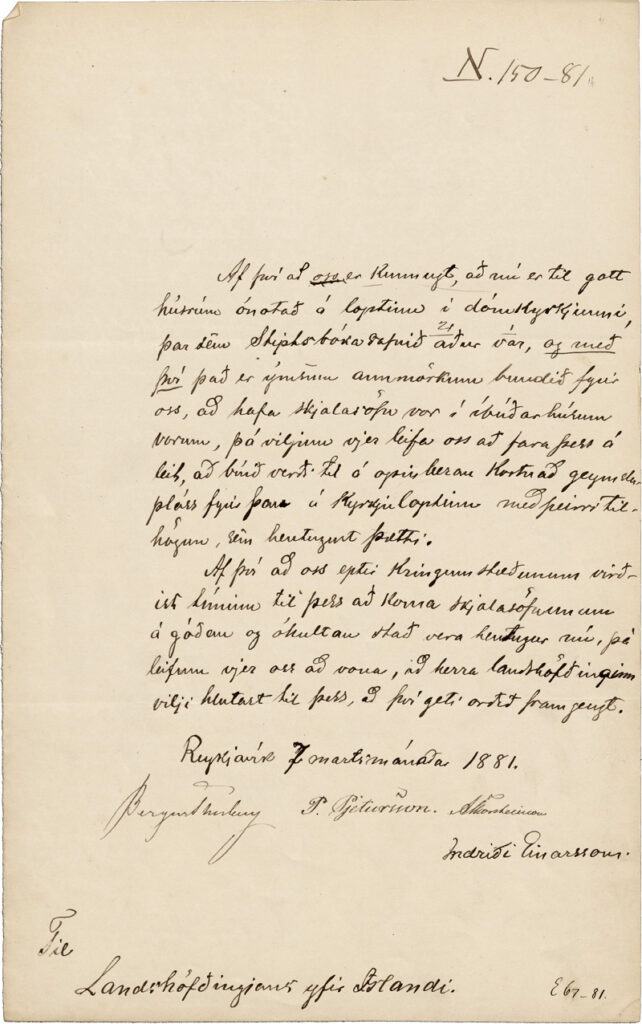 N. 150-81.
Af því að oss er kunnugt, að nú er til gott
húsrúm ónotað á loptinu í dómkyrkjunni,
þar sem Stiptsbókasafnið áður var, og með
því það er ýmsum annmörkum bundið fyrir
oss, að hafa skjalasöfn vor í íbúðarhúsum
vorum, þá viljum vjer leifa oss að fara þess á
leit, að búið verði til á opinberan kostnað geymslu-
pláss fyrir þau á kyrkjuloptinu með þeirri til-
högun, sem hentugust þætti.
Af því að oss eptir kringumstæðunum virð-
ist tíminn til þess að koma skjalasöfnunum
á góðan og óhultan stað vera hentugur nú, þá
leifum vjer oss að vona, að herra landshöfðinginn
vilji hlutast til þess, að því geti orðið framgengt.
Reykjavík 7 martsmánaðar 1881.
Bergur Thorberg P. Pjetursson. Á. Thorsteinson
Indriði Einarsson.
Til
Landshöfðingjans yfir Íslandi.